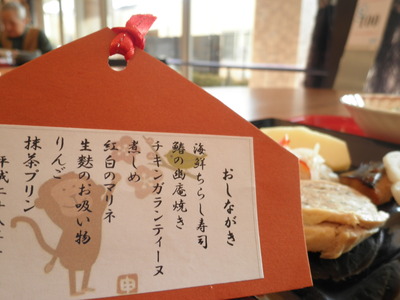 おしながき
海鮮ちらし寿司
鰆の幽庵焼き
チキンガランティーヌ
煮しめ
紅白のマリネ
生麩のお吸い物
りんご
抹茶プリン
平成二十八年
申